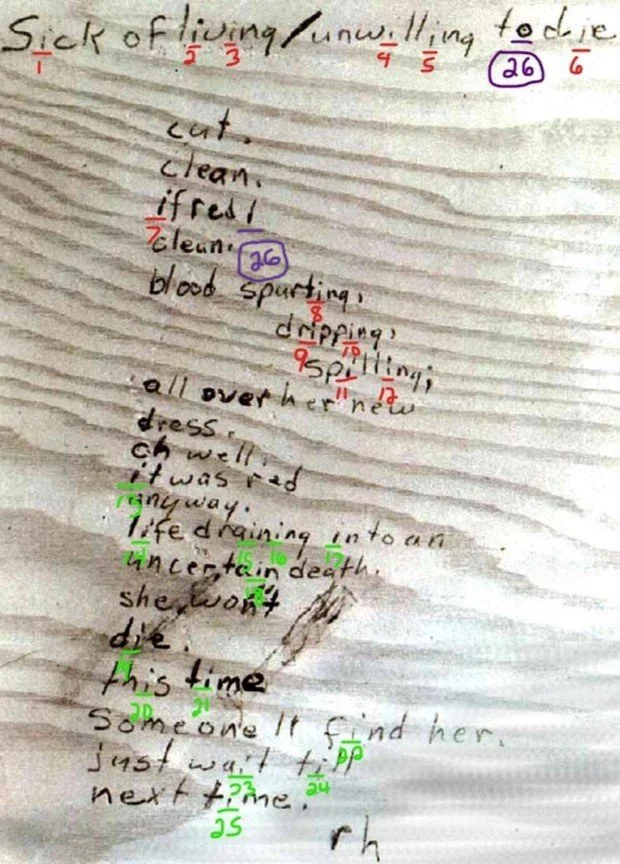 Sick of living/unwilling to die
1 2 3 4 5 26 6
cut.
clean.
if red /
7 26
clean.
blood spurting,
8
dripping,
9 10
spilling;
11 12
all over her new
dress.
oh well.
it was red
13
anyway.
life draining into an
14 15 16 17
uncertain death.
18
she won't
die.
19
this time
20 21
Someone ll find her.
22
just wait till
23 24
next time.
25
rh